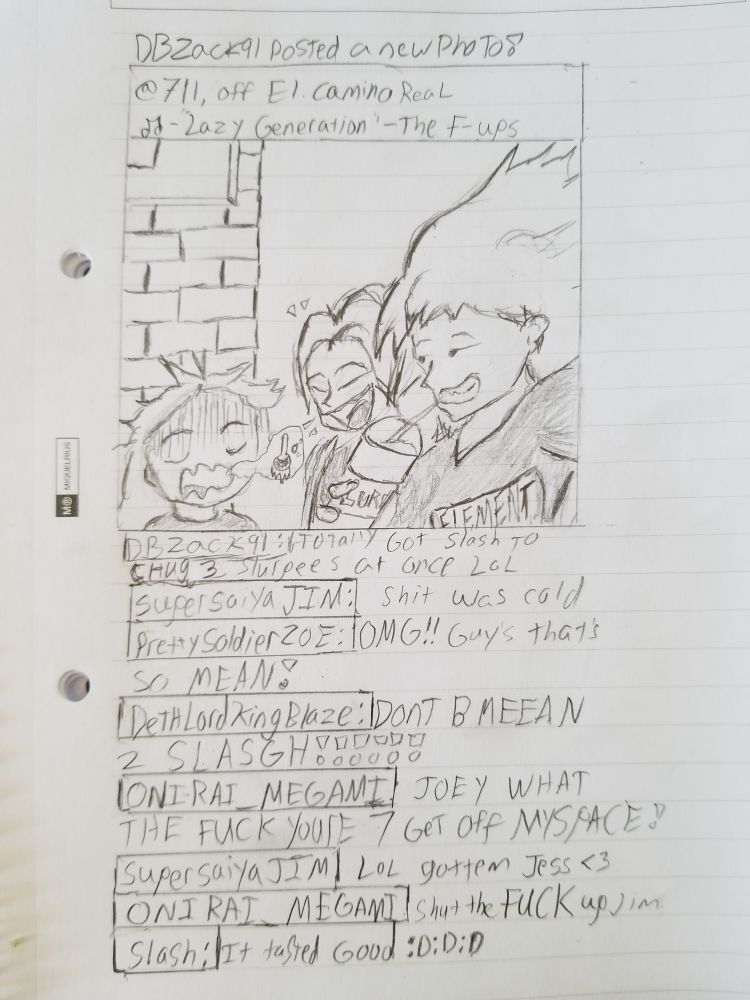 DBZack91 posted a new PhoTo!
@711, off El. Camino ReaL
♫-"Lazy Generation"-The F-ups
ELEMENT
DBZack91: I TOTally GoT Slash TO
CHUG 3 Slurpees at once LoL
SupersaiyaJIM: Shit was cold
PrettySoldierZOE: OMG!! Guy's that's
SO MEAN!
DethLordKingBlaze: DONT B MEEAN
2 SLASGH!!!!!!
ONI-RAI_MEGAMI JOEY WHAT
THE FUCK YOU'RE 7 GeT Off MYSPACE!
SupersaiyaJIM LoL gottem Jess <3
ONI RAI_MEGAMI Shut the FUCK up Jim.
Slash: It tasted Good :D:D:D
M® MIQUELRIUS